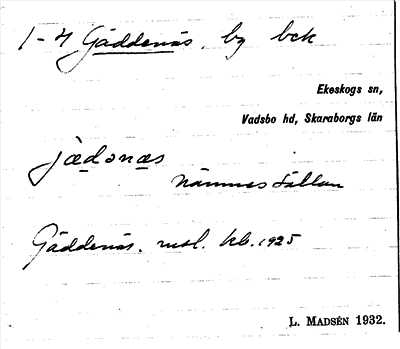 1-4 Gäddenäs, by bek
Ekeskogs sn,
Vadsbo hd, Skaraborgs län
jædənæs
nämnes sällan
Gäddenäs. msl. kb. 1925
L. MADSÉN 1932.